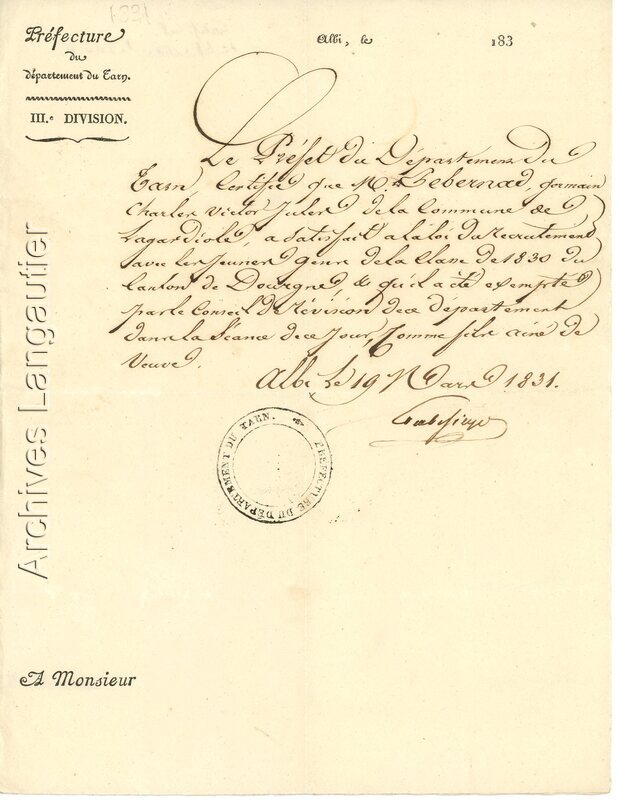 1831
Préfecture
du
département du Tarn.
III.e DIVISION.
Albi, le 183
Le Préfet du Département du
Tarn, Certifie que M. Bebernad, germain
Charles Victor Jules de la Commune de
Lagardiolle, a satisfait a la loi du recrutement
avec les jeunes gens de la Classe de 1830 du
Canton de Dourgne, & qu'il a été exempté
par le Conseil de révision de ce département
dans la Séance de ce jour, Comme fils ainé de
Veuve.
Albi Le 19 Mars 1831.
PRÉFECTURE DU DÉPARTEMENT DU TARN.
A Monsieur
Archives Langautier